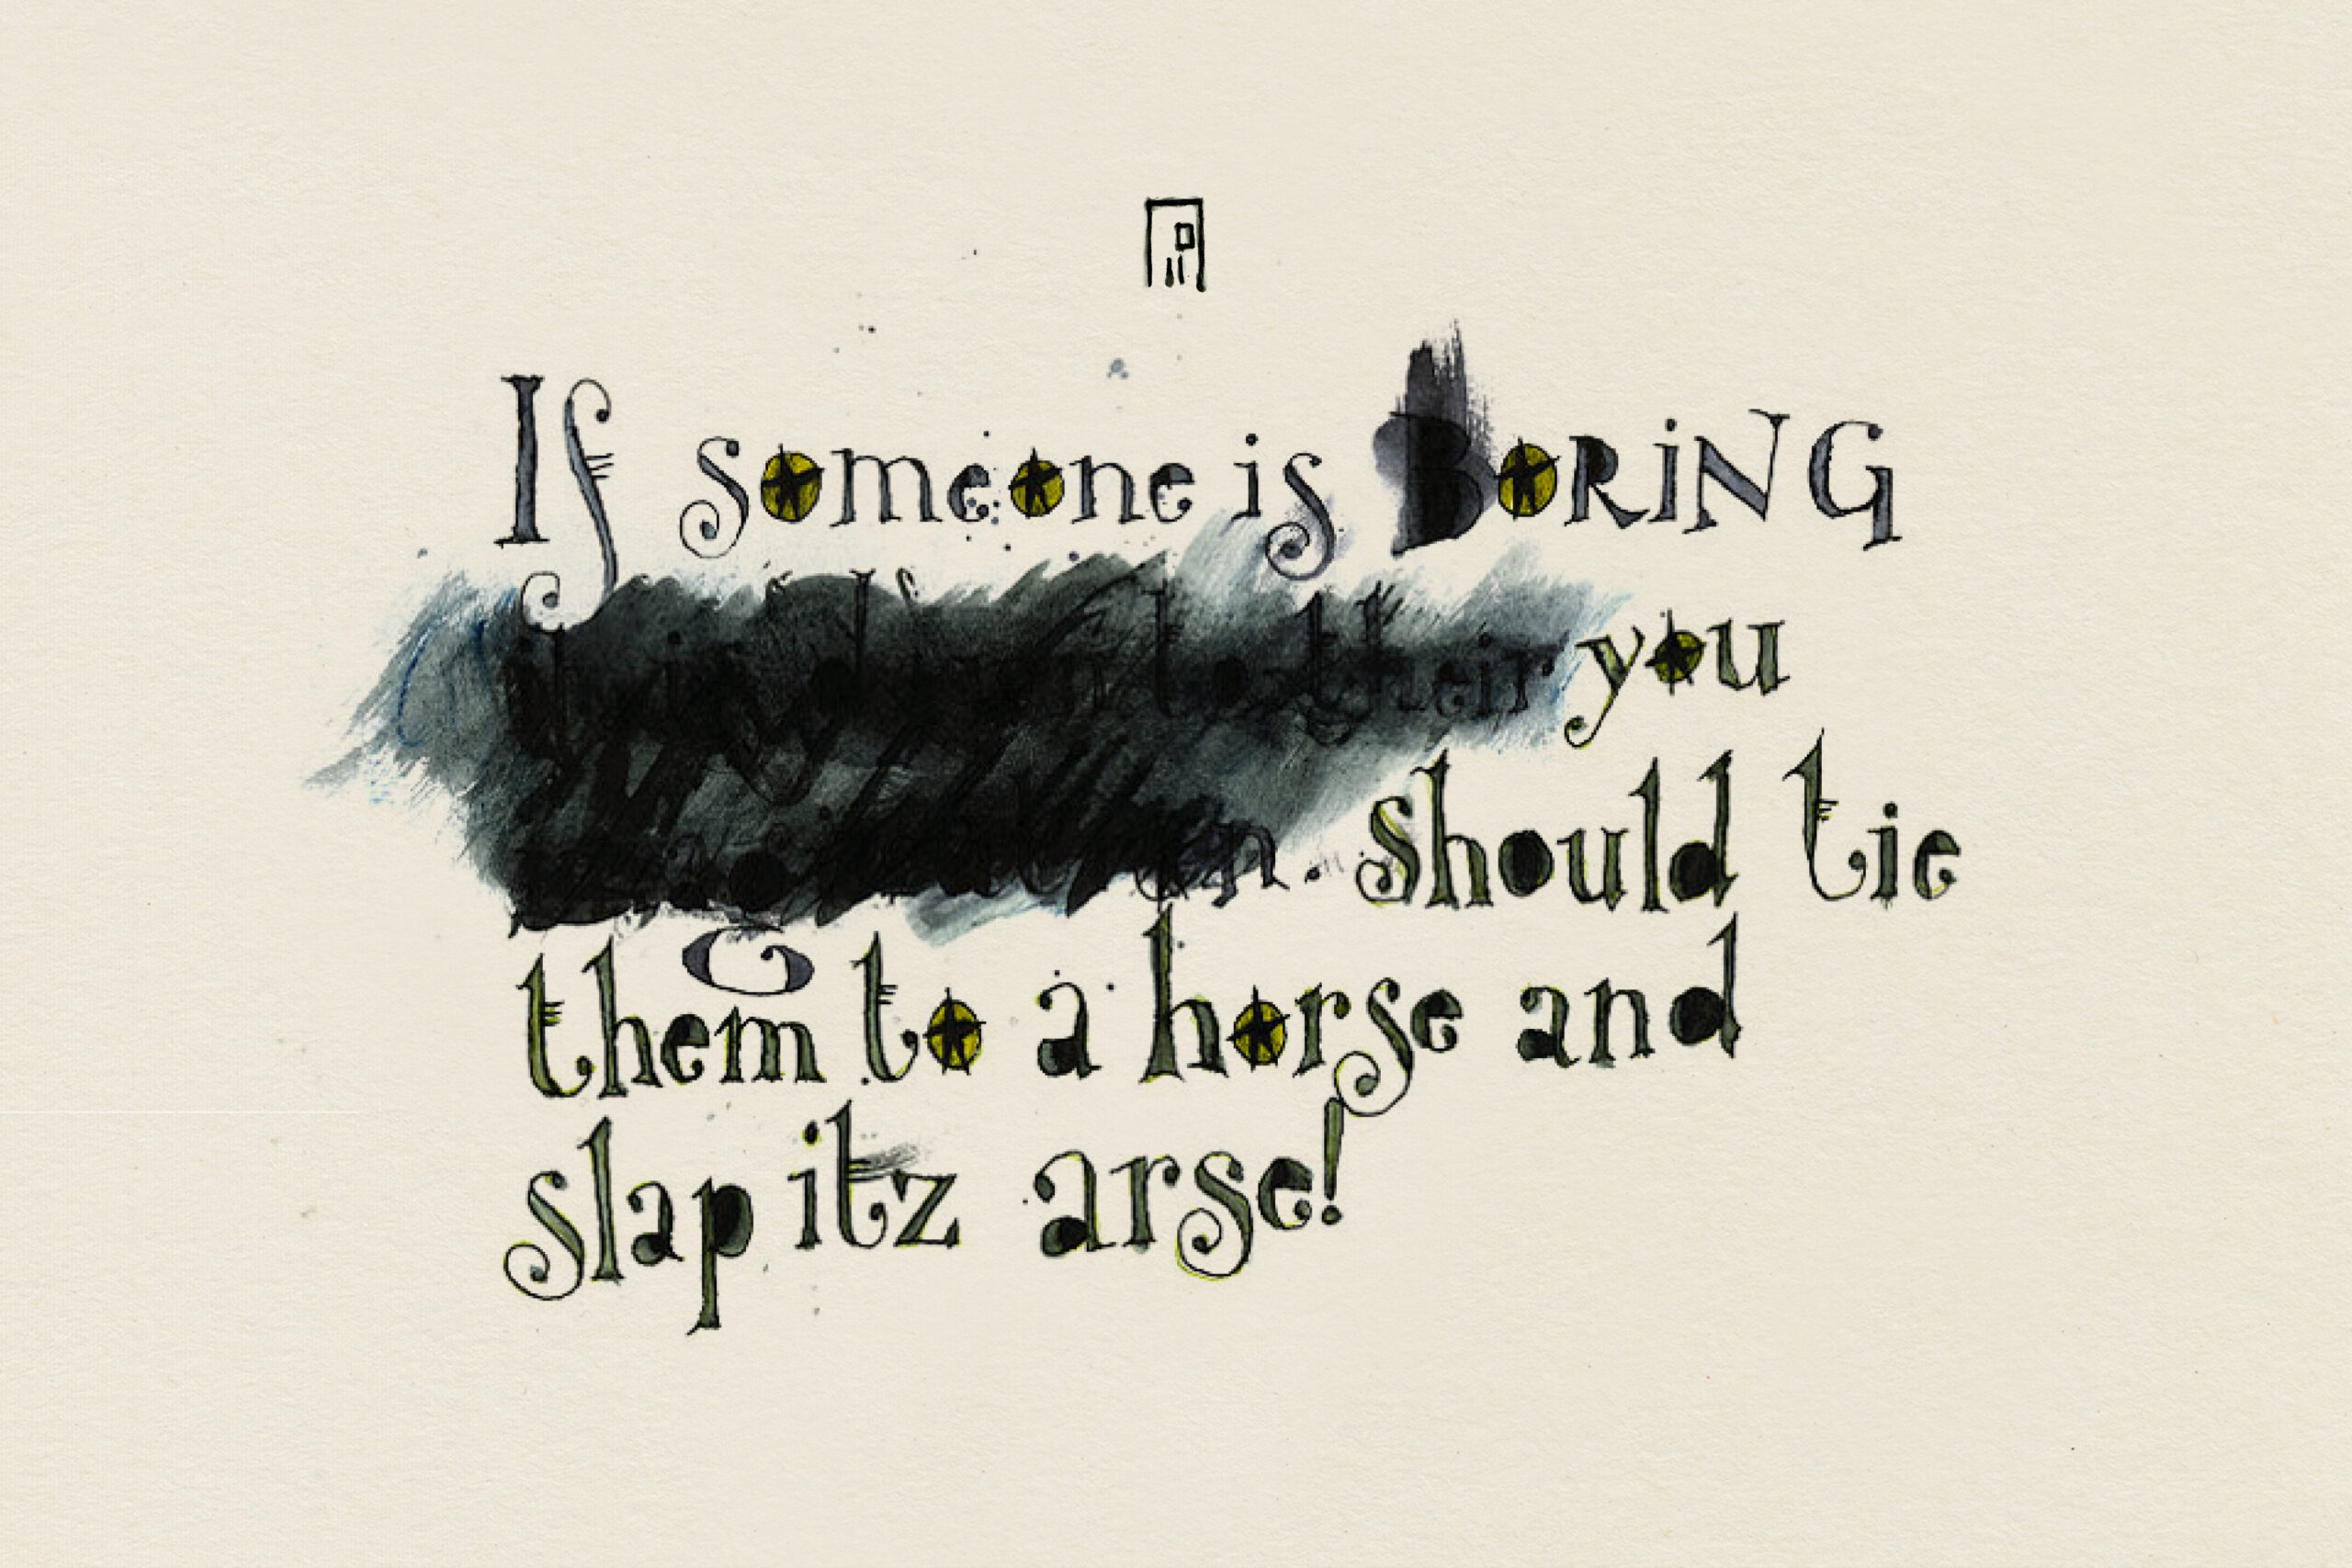 If someone is BORiNG
to their you
should tie
them to a horse and
slap itz arse!